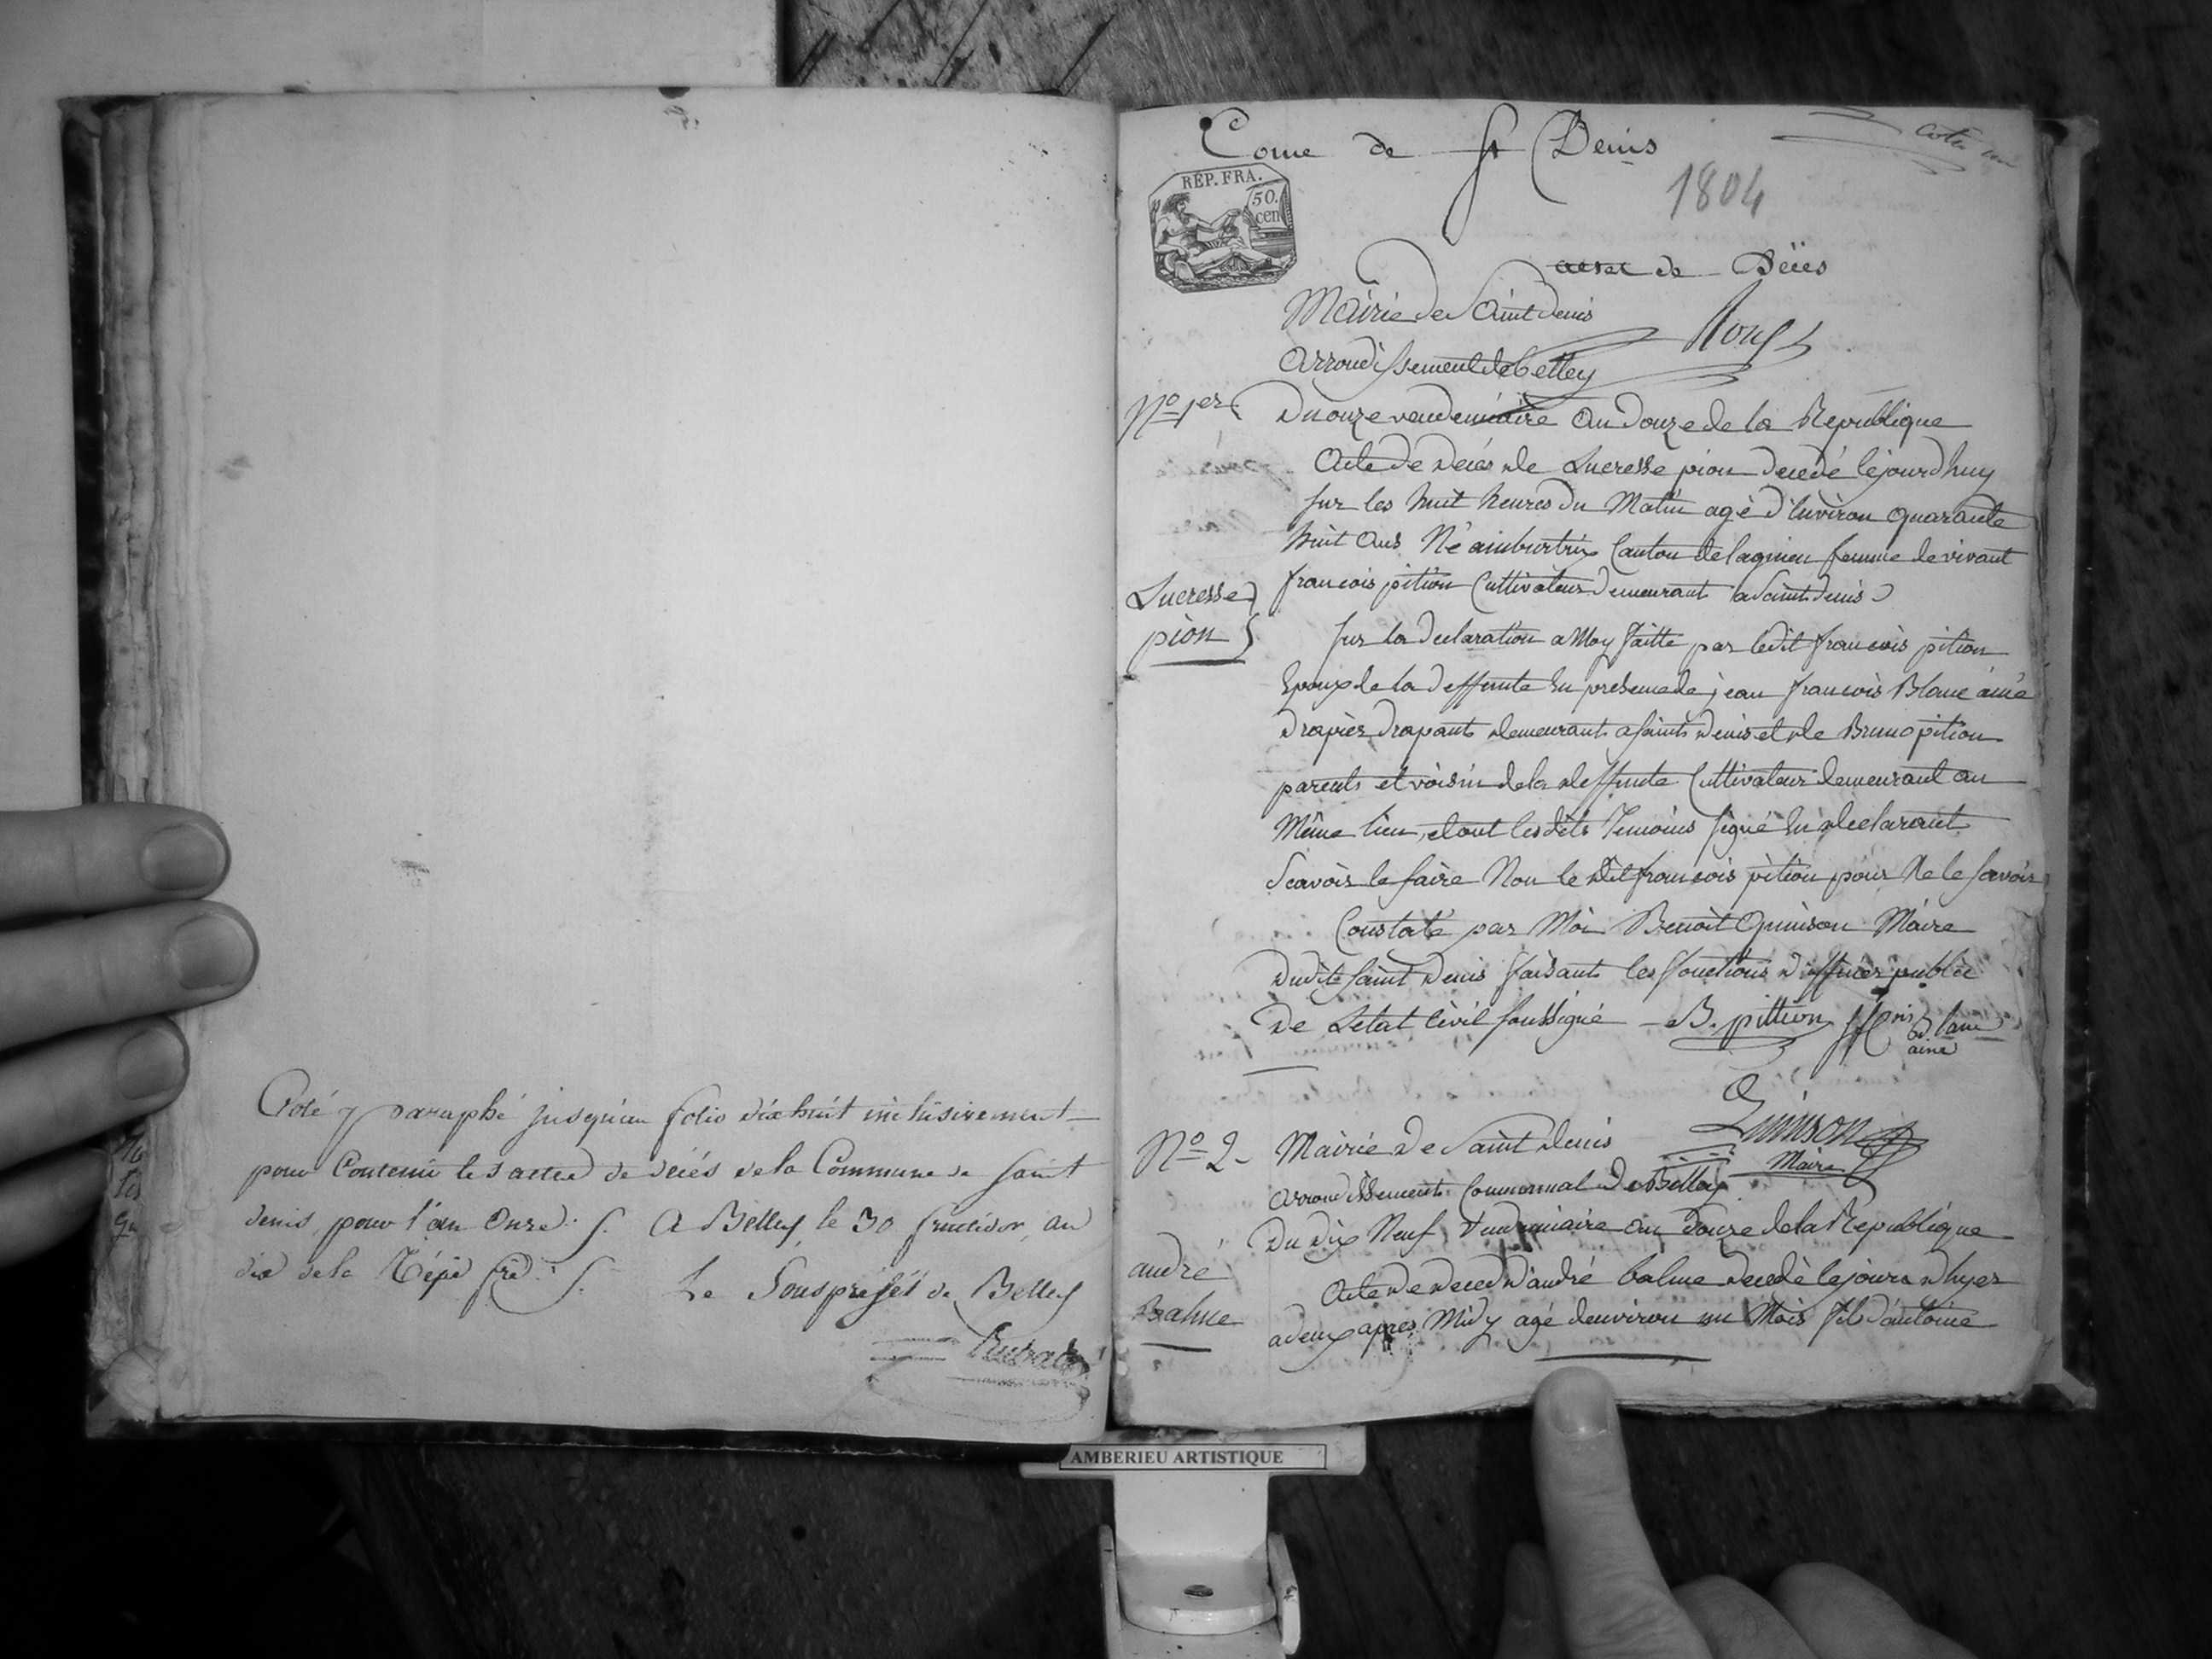 Coté & paraphé jusqu'au folio dix huit inclusivement
pour Contenir les actes de décés de la Commune de Saint
denis, pour l'an Onze. A Belley, le 30 fructidor, an
dix de la Répe fse.
Le Souspréfét de Belley
Come de St Denis
Cotté un
RÉP. FRA.
50.
cen
1804
de Déces
Mairie de Saint denis
Arrondissement de belley
No 1er
Du onze vendemiaire an douze de la Republique
Acte de deces de Lucresse pion decedé lejourdhuy
sur les huit heures du Matin agé d'Environ quarante
huit ans Né ambutrix Canton de lagnieu femme de vivant
francois pition Cultivateur demeurant a Saint denis
Lucresse
pion
Sur la declaration a Moy faitte par ledit francois pition
Epoux de la deffunte En presence de jean francois Blanc ainé
drapier drapant demeurant a saint Denis et de Bruno pition
parents et voisin de la deffunte Cultivateur demeurant au
Même lieu, dont lesdits Temoins signé En declarant
Scavoir le faire Non le dit francois pition pour Ne le scavoir
Constaté par Moi Benoit Quinson Maire
dudit Saint Denis faisant les fonctions d'officier public
De Letat Civil soussigné B. pittion
Blanc
ainé
Quinson
Maire
No 2
Mairie De Saint denis
arrondissement Communal De Belley
Du dix Neuf Vendemiaire an douze de la Republique
andré
Balme
Acte de deces d'andré balme decedé le jour d'hyer
a deux apres Midy agé denviron un Mois fils d'antoine
AMBERIEU ARTISTIQUE